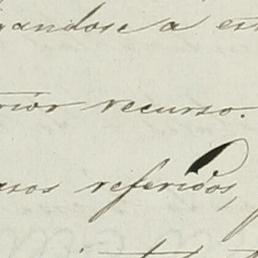 gandose a es
rior recurso.
asos referidos,